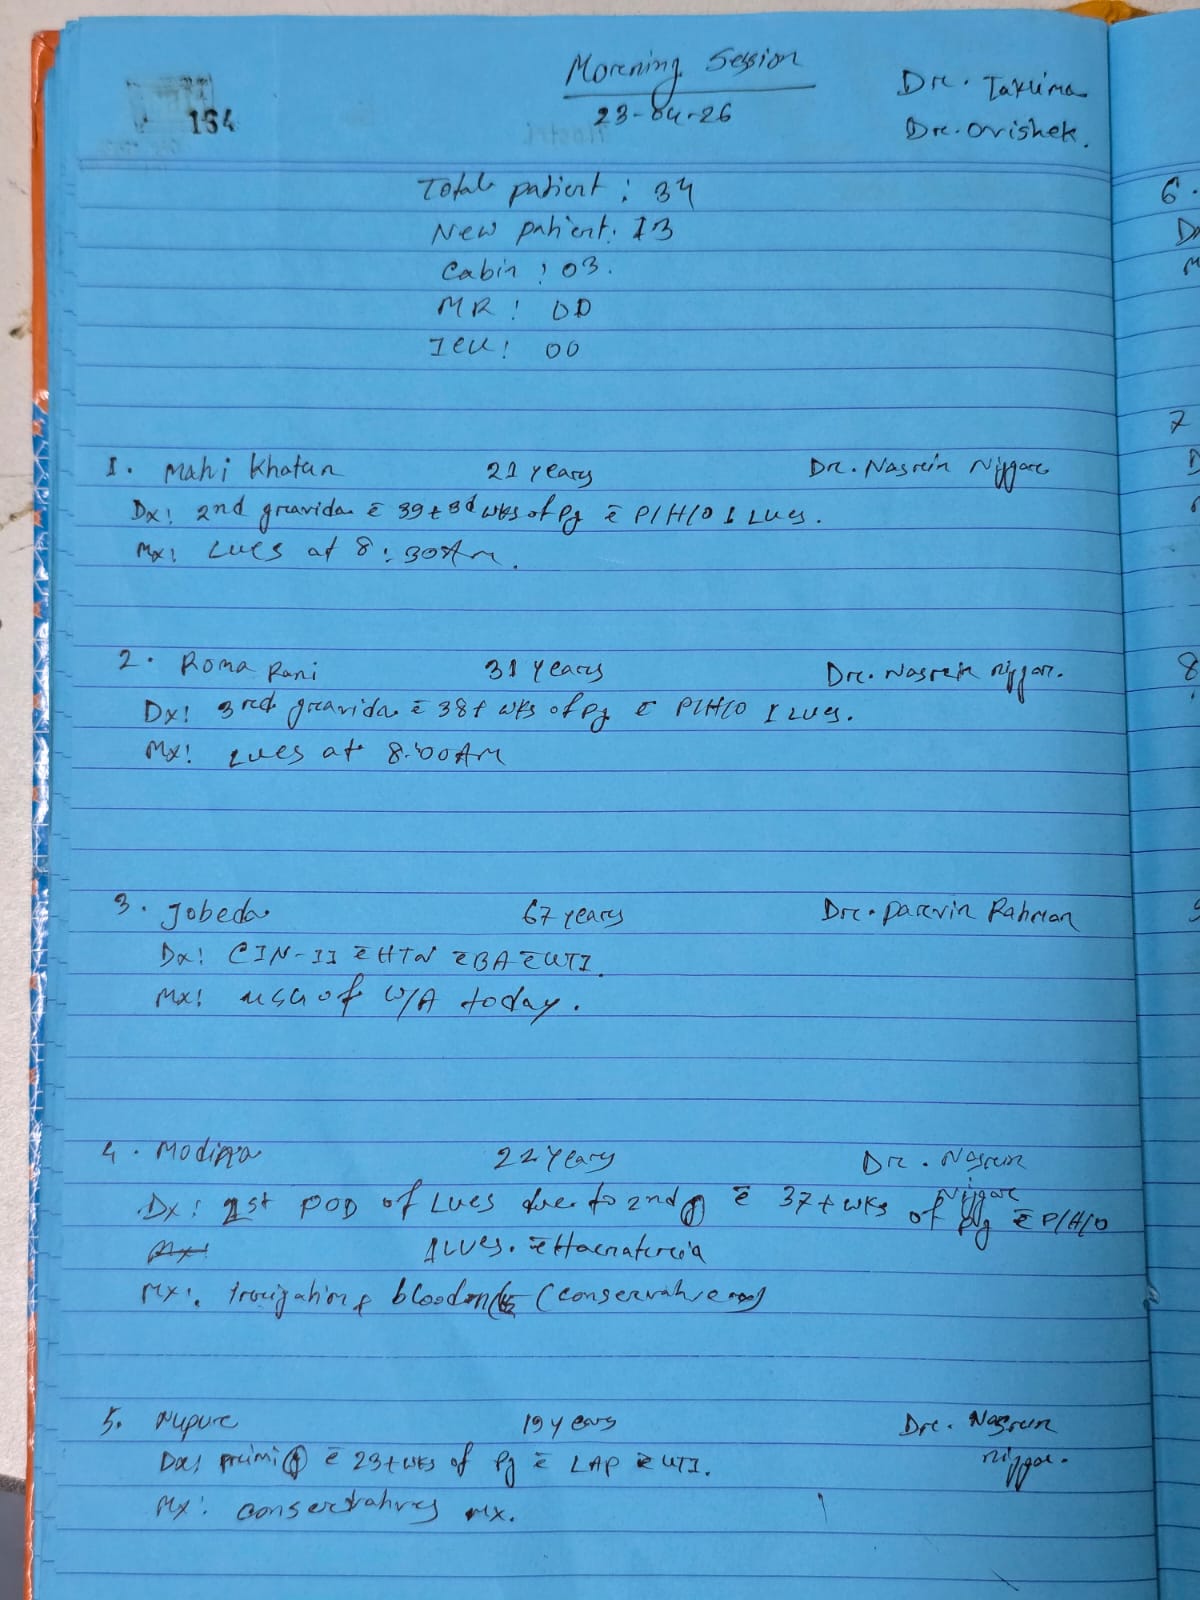 164
Morening Session
23-04-26
Dre. Takima
Dre. Ovishek.
Total patient : 34
New patient : 13
Cabin : 03.
MR : 00
ICU : 00
1. Mahi Khatun 21 years Dre. Nasrein Niggare
Dx: 2nd gravida c̄ 39+3d wks of Pg c̄ P/H/O 1 LUCS.
Mx: LUCS at 8:30 Am.
2. Roma Rani 31 years Dre. Nasrein Niggar.
Dx: 3rd gravida c̄ 38+ wks of Pg c̄ P/H/O 1 LUCS.
Mx: LUCS at 8:00 AM
3. Jobeda 67 years Dre. Parvin Rahman
Dx: CIN-II c̄ HTN c̄ BA c̄ UTI.
Mx: USG of W/A today.
4. 22 years Dre. Nasrein Niggare
Dx: 1st POD of LUCS due to 2nd g c̄ 37+ wks of Pg c̄ P/H/O
1 LUCS. c̄ Haematureia
Mx: Irrigation & blood (conservative
5. Nupure 19 years Dre. Nasrein Niggar.
Dx: primi g c̄ 23+ wks of Pg c̄ LAP c̄ UTI.
Mx: conservatives Mx.
6.
7
8